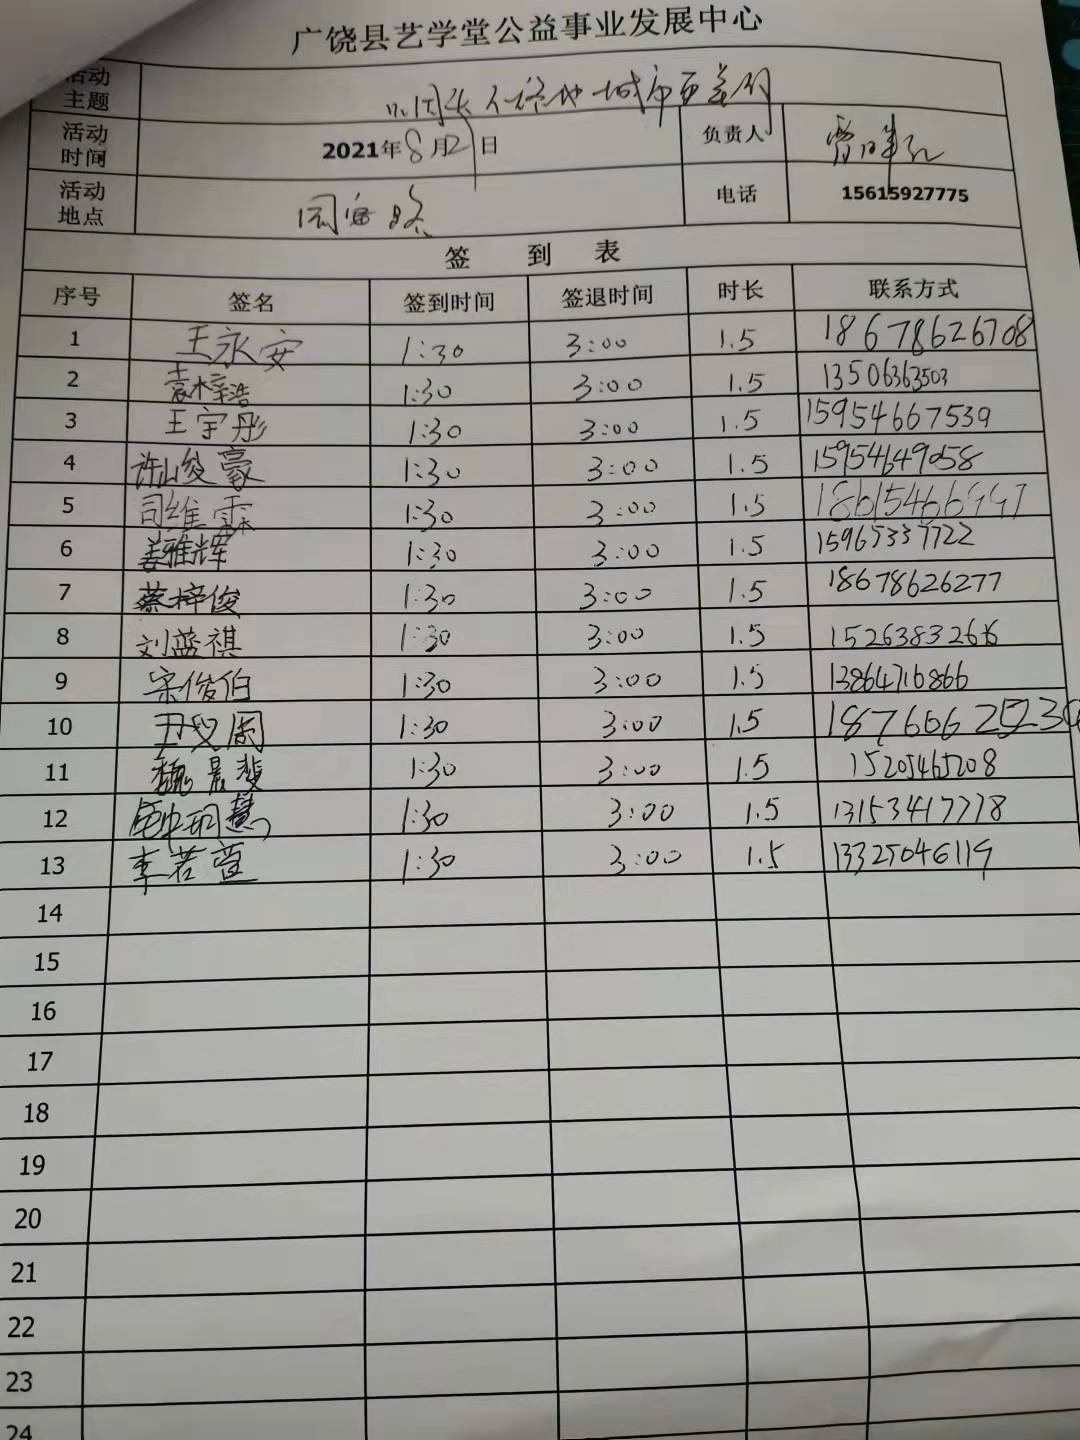 广饶县艺学堂公益事业发展中心
活动主题 城市更美好
活动时间 2021年8月21日 负责人
活动地点 电话 15615927775
签 到 表
序号 签名 签到时间 签退时间 时长 联系方式
1 王永安 1:30 3:00 1.5 18678626708
2 袁梓浩 1:30 3:00 1.5 13506363503
3 王宇彤 1:30 3:00 1.5 15954667539
4 许峻豪 1:30 3:00 1.5 15954649058
5 司维霖 1:30 3:00 1.5
6 姜雅辉 1:30 3:00 1.5 15965337722
7 蔡梓俊 1:30 3:00 1.5 18678626277
8 刘蓝祺 1:30 3:00 1.5
9 宋俊伯 1:30 3:00 1.5 13864716866
10 1:30 3:00 1.5
11 魏晨斐 1:30 3:00 1.5 15205465208
12 1:30 3:00 1.5
13 李若萱 1:30 3:00 1.5 13325046119
14
15
16
17
18
19
20
21
22
23
24